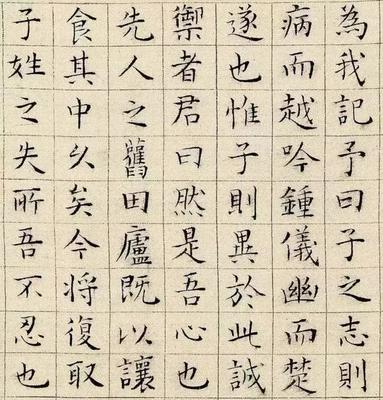 為我記予曰子之志則
病而越吟鍾儀幽而楚
遂也惟子則異於此誠
禦者君曰然是吾心也
先人之舊田廬既以讓
食其中久矣今將復取
子姓之失所吾不忍也